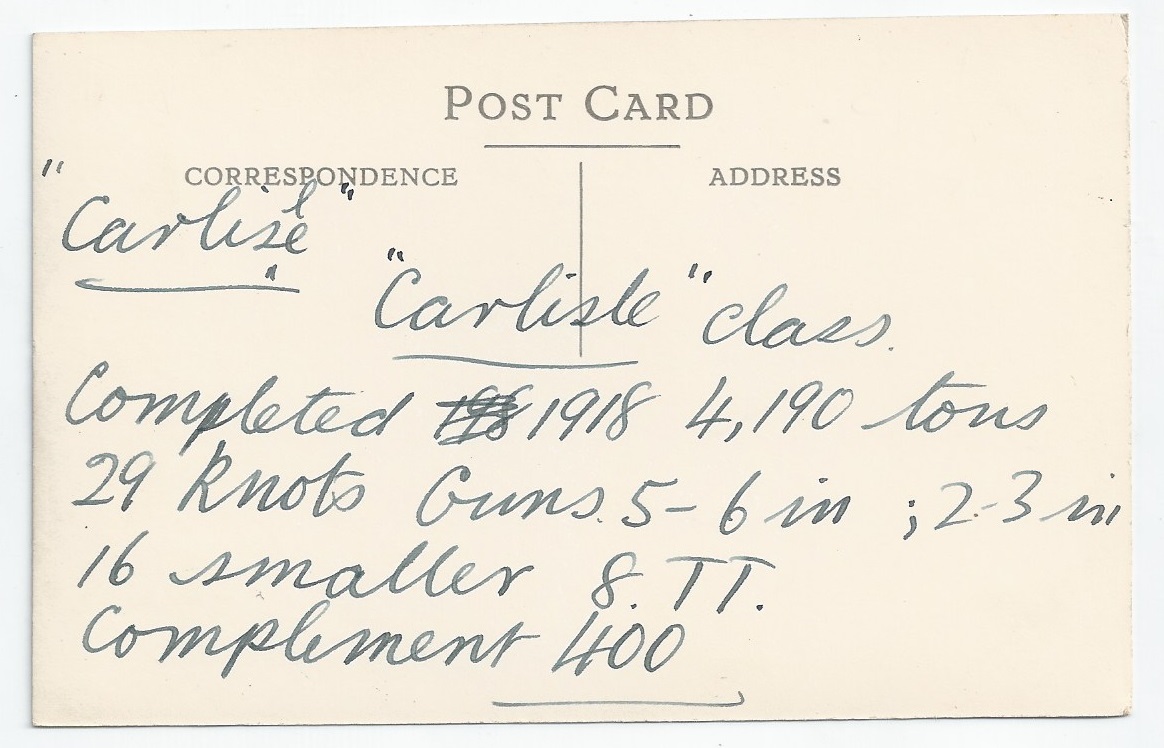 POST CARD
CORRESPONDENCE ADDRESS
"Carlisle"
"Carlisle" class.
Completed 1918 4,190 tons
29 Knots Guns. 5-6 in ; 2-3 in
16 smaller 8. TT.
Complement 400